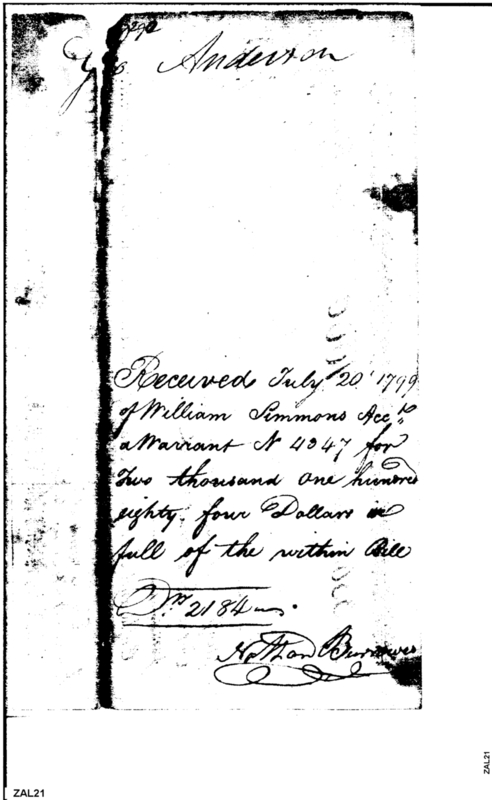 Geo Anderson
Received July 20 1799
of William Simmons Acct
a Warrant N 4347 for
Two thousand one hundred
eighty four Dollars in
full of the within Bill
Drs 2184
Nathan Burrowes
ZAL21
ZAL21